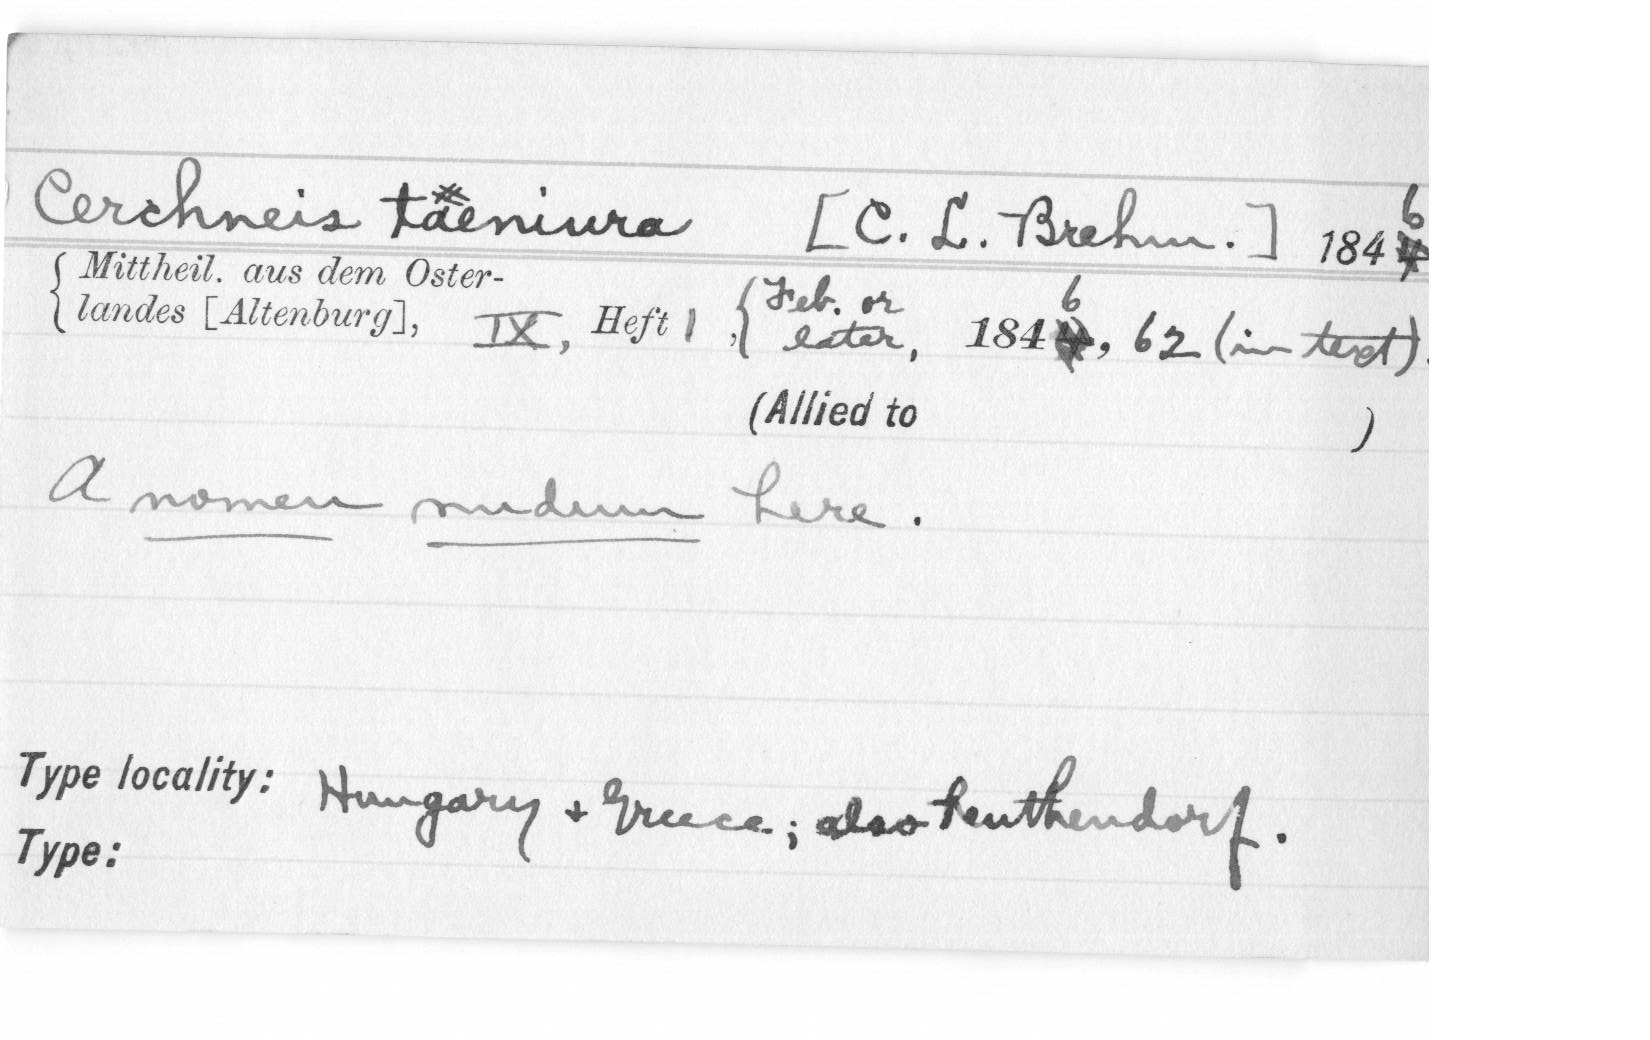 Cerchneis taeniura [C. L. Brehm.] 1846
Mittheil. aus dem Oster-
landes [Altenburg], IX, Heft 1, Feb. or later, 1846, 62 (in text).
(Allied to )
A nomen nudum here.
Type locality: Hungary + Greece; also Renthendorf.
Type: